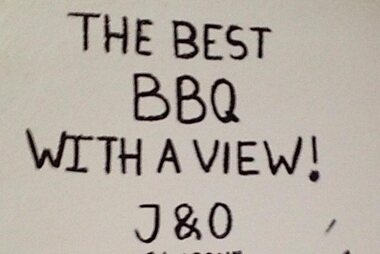 THE BEST
BBQ
WITH A VIEW!
J & O